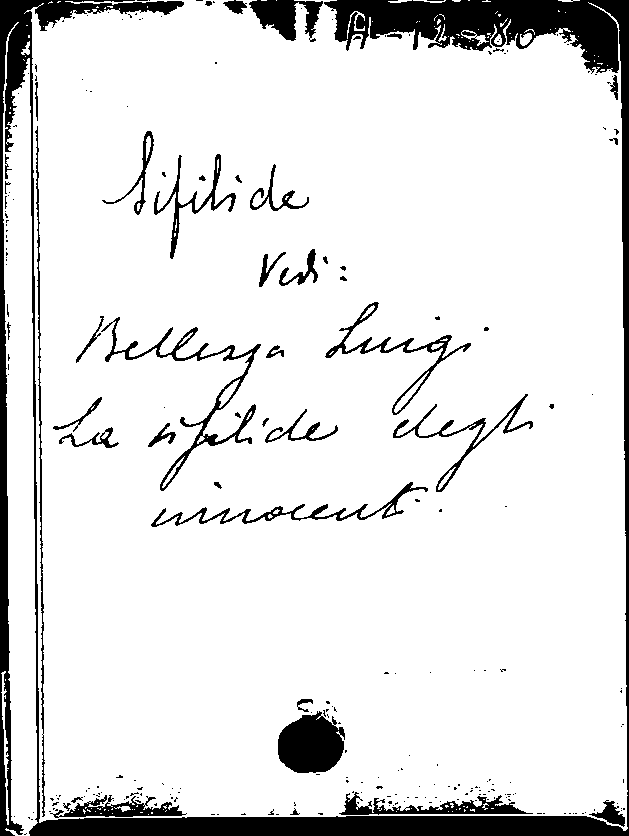 A-12-80
Sifilide
Vedi:
Bellezza Luigi
La sifilide degli
innocenti.